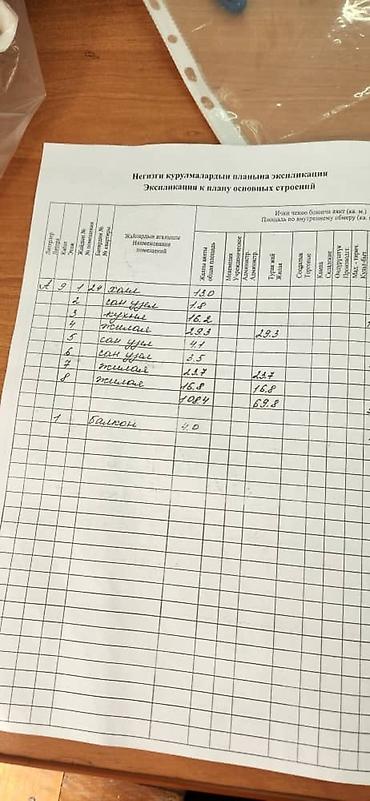 Негизги курулмалардын планына экспликация
Экспликация к плану основных строений
Ички ченөө боюнча аянт (кв. м.)
Площадь по внутреннему обмеру (кв.
Литерлер Литера
Кабат Этаж
Жайдын № № помещения
Батирдин № № квартиры
Жайлардын аталышы Наименование помещений
Жалпы аянты общая площадь
Мекемелик Учрежденческое
Администр. Администр.
Турак жай Жилая
Соодалык Торговые
Кампа Складские
Өндүрүштүк Производст
Мад.-тирич. Культ-быт
А 9 1 24 холл 13.0
2 сан узел 1.8
3 кухня 16.2
4 жилая 29.3 29.3
5 сан узел 4.1
6 сан узел 3.5
7 жилая 23.7 23.7
8 жилая 16.8 16.8
108.4 69.8
1 балкон 4.0